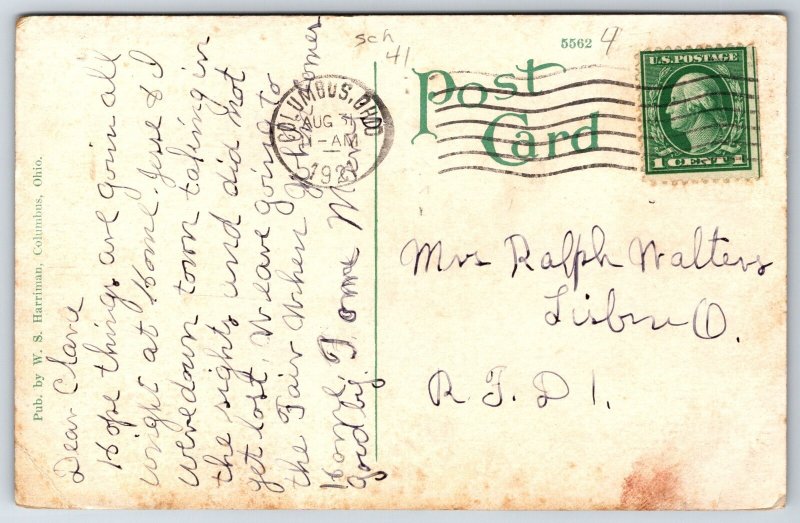 Pub. by W. S. Harriman, Columbus, Ohio.
Dear Clara
Hope things are goin all
wright at Home. Jese & I
were down town taking in
the sights and did not
get lost. We are going to
the Fair When you
Home
goodby.
sch
41
5562
4
Post
Card
COLUMBUS, OHIO
AUG
-AM
192
U.S. POSTAGE
1 CENT 1
Mrs Ralph Walters
Lisbon O.
R. F. D 1.